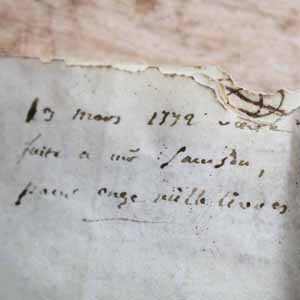 mars 1772 vente
faite a mr Samson,
pour onze mille livres